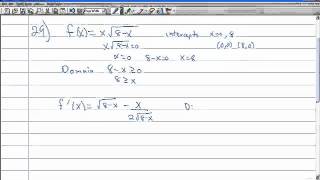 29) f(x) = x√8-x intercepts x=0, 8
x√8-x = 0 (0,0) (8,0)
x=0 8-x=0 x=8
Domain 8-x ≥ 0
8 ≥ x
f'(x) = √8-x - x/2√8-x D: